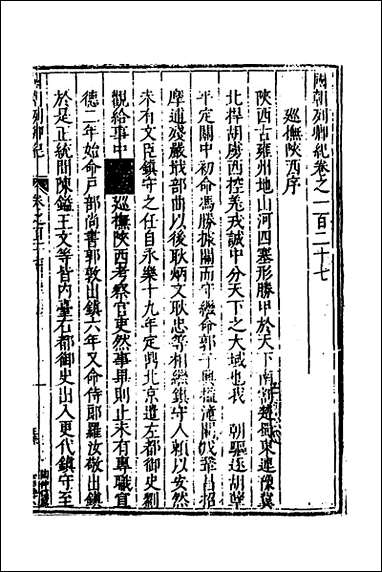 國朝列卿紀卷之一百二十七
巡撫陝西序
陝西古雍州地山河四塞形勝甲於天下南
蜀東連豫冀
北捍胡虜西控羗戎誠中分天下之大域也我 朝驅逐胡
平定關中初命馮勝據關而守繼命郭子興
招
摩通殘嚴戢部曲以後耿炳文耿忠等相繼鎮守人賴以安然
未有文臣鎮守之任自永樂十九年定鼎北京遣左都御史劉
觀給事中
巡撫陝西考察官吏然事畢則止未有專職宣
德二年始命戶部尚書郭敦出鎮六年又命侍郎羅汝敬出鎮
於是正統間陳鎰王文等皆內臺右都御史出入更代鎮守至
國朝列卿紀
卷之百二十七